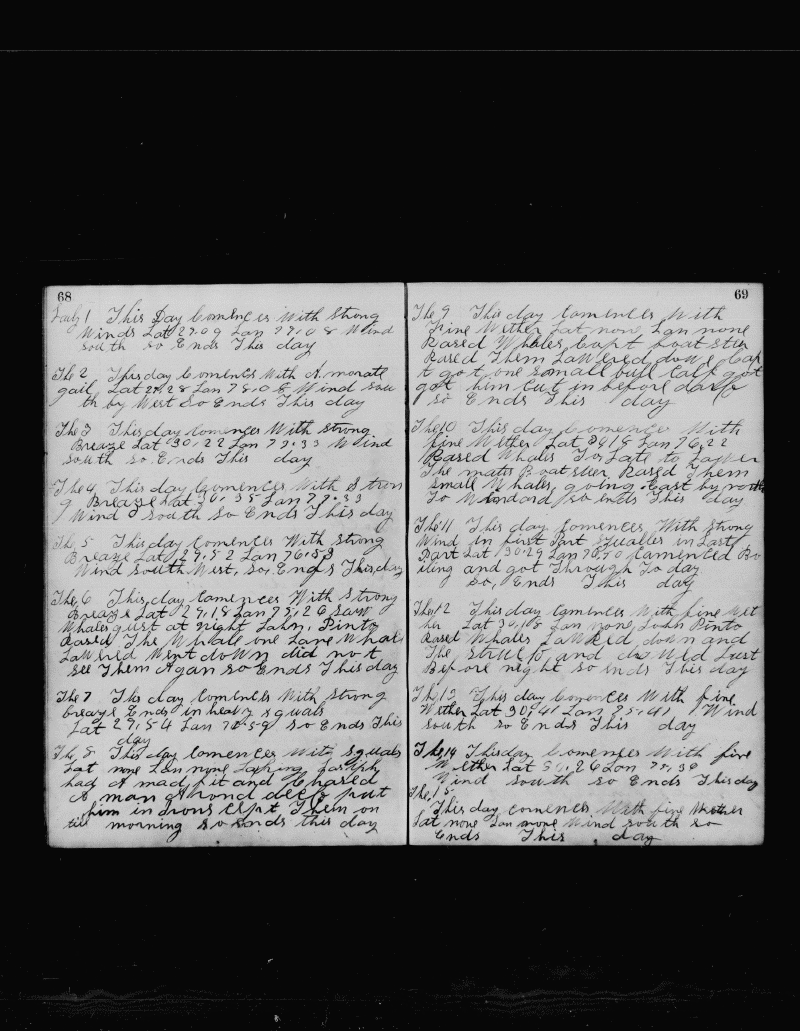 68
July 1 This Day Comences With Strong
Winds Lat 29.09 Lan 77.08 Wind
South so Ends This day
The 2 This day Comences With A morate
gail Lat 29.28 Lan 78.08 Wind Sou
th by West So Ends This day
The 3 This day Comences With Strong
Breaze Lat 30.22 Lan 77.33 Wind
South so Ends This day
The 4 This day Comences With Stron
g Breaze Lat 30.35 Lan 77.33
Wind South So Ends This day
The 5 This day Comences With Strong
Breaze Lat 29.52 Lan 76.53
Wind South West, So, Ends This day
The 6 This day Comences With Strong
Breaze Lat 29.18 Lan 75.26 Saw
Whales gust at night John, Pinto
Rased The Whale one Lane Whale
Lawered Went down did not
see Them Agan So Ends This day
The 7 This day Comences With Strong
breaze Ends in heavy squals
Lat 29.54 Lan 75.59 So Ends This
day
The 8 This day Comences With squals
Lat none Lan none Joseph
had A mad fit and Chased
A man a round deck put
him in Irons Cept Them on
till morning So Ends this day
69
The 9 This day Comences With
Fine Wether Lat none Lan none
Rased Whales Capt boat stur
Rased Them Lawered down Cap
t got one small bull Calf got
got him Cut in before dark
So Ends This day
The 10 This day Comences With
fine Wether Lat 3018 Lan 76,22
Rased Whales To Late to Lower
The matts Boat stur Rased Them
small Whales going East by north
To Windard so ends This day
The 11 This day Comences With Strong
Wind in first Part squalies in Last
Part Lat 30.29 Lan 76.50 Comenced Bo
iling and got Through To day
So, Ends This day
The 12 This day Comences With fine Wet
her Lat 30.18 Lan none John Pinto
Rased Whales Lawered down and
The struck and Just
Before night so ends This day
The 13 This day Comences With fine
Wether Lat 30.41 Lan 75.41 Wind
south so Ends This day
The 14 This day Comences With fine
Wether Lat 30.26 Lon 75.38
Wind south so Ends This day
The 15
This day comences With fine Wether
Lat none Lan none Wind south so
Ends This day